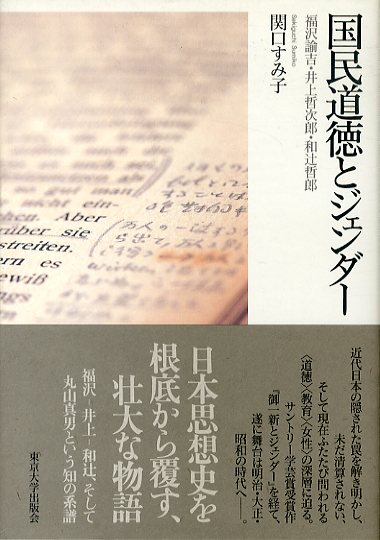 国民道徳とジェンダー
福沢諭吉・井上哲次郎・和辻哲郎
関口すみ子
Sekiguchi Sumiko
ichen.
Aber
über sie
streiten.
ern es
ewiß
近代日本の隠された罠を解き明かし、
未だ清算されない、
そして現在ふたたび問われる
〈道徳〉〈教育〉〈女性〉の深層に迫る。
サントリー学芸賞受賞作
『御一新とジェンダー』を経て、
遂に舞台は明治・大正・
昭和の時代へ――。
日本思想史を
根底から覆す、
壮大な物語
福沢―井上―和辻、そして
丸山真男という知の系譜
東京大学出版会